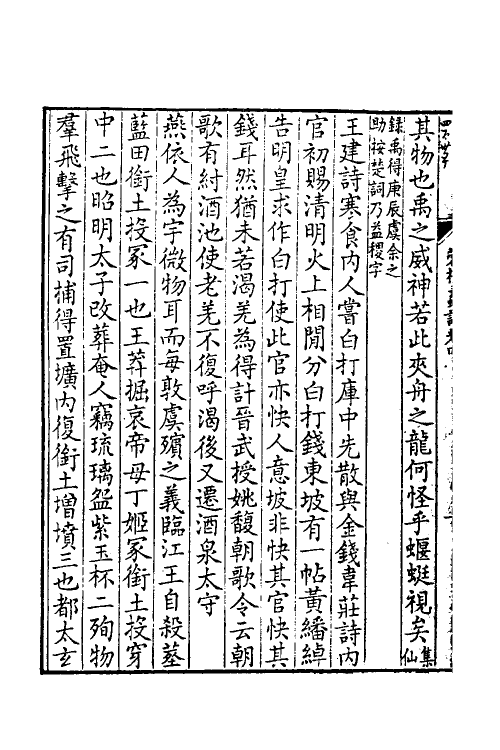 其物也禹之威神若此夾舟之龍何怪乎蝘蜓視矣集仙
録禹得庚辰虞余之
助按楚詞乃益稷字
王建詩寒食内人嘗白打庫中先散與金錢韋莊詩内
官初賜清明火上相閒分白打錢東坡有一帖黄繙綽
告明皇求作白打使此官亦快人意坡非快其官快其
錢耳然猶未若渴羌為得計晉武授姚馥朝歌令云朝
歌有紂酒池使老羌不復呼渴後又還酒泉太守
燕依人為宇微物耳而每敦虞殯之義臨江王自殺墓
藍田銜土投冢一也王莽掘哀帝母丁姬冢銜土投穿
中二也昭明太子改葬奄人竊琉璃盌紫玉杯二殉物
羣飛擊之有司捕得置壙内復銜土增墳三也都太玄